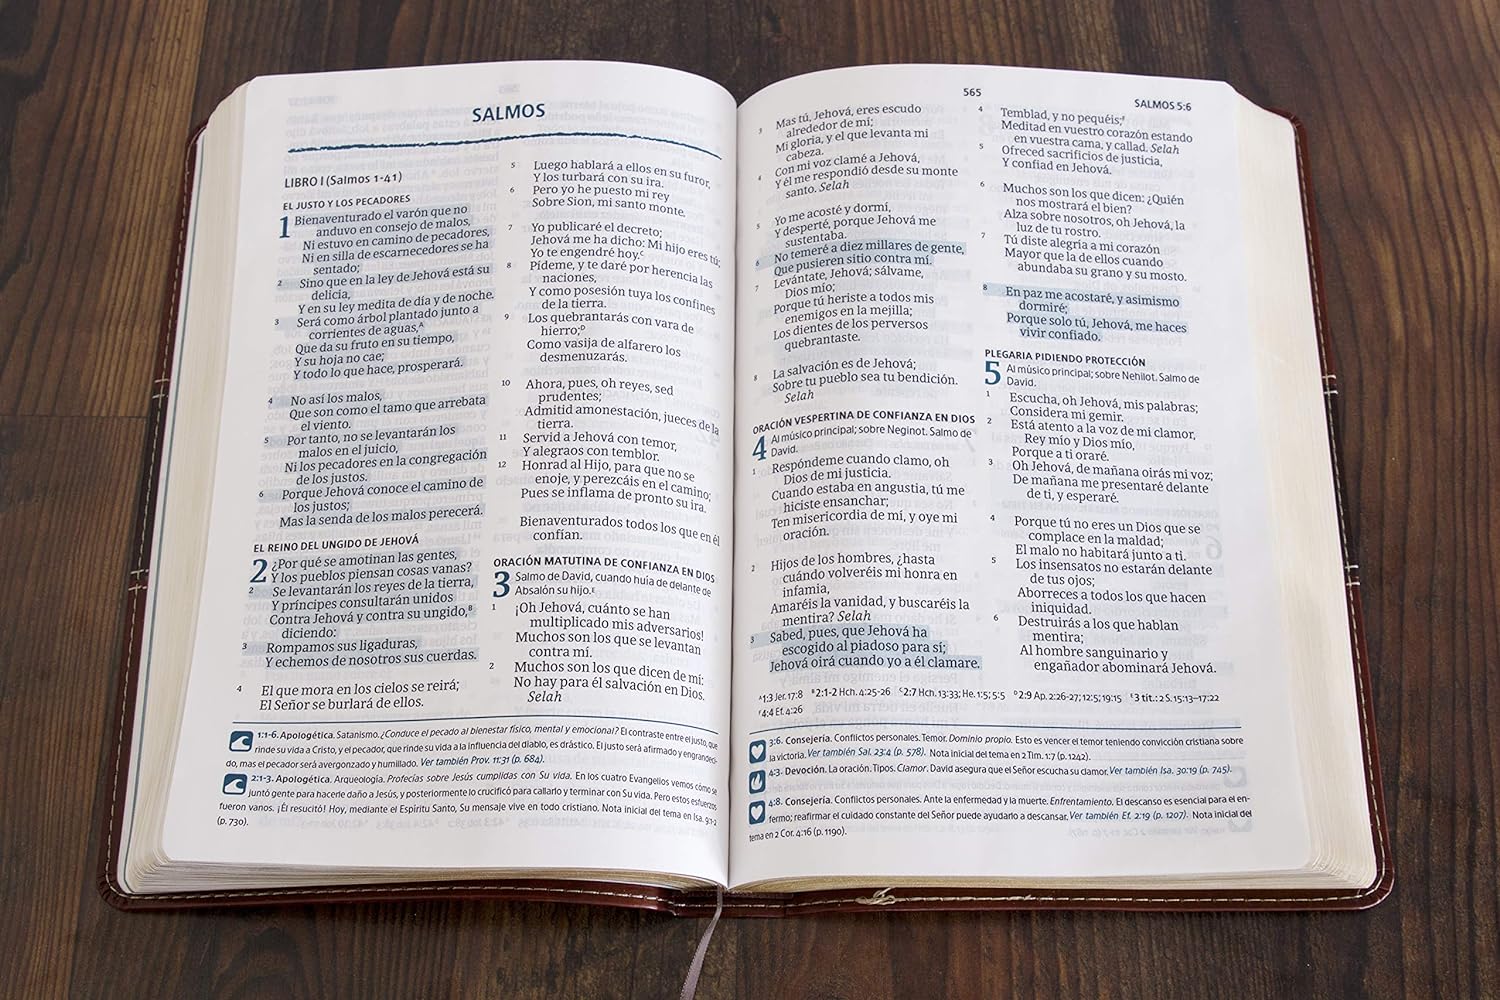 SALMOS
LIBRO I (Salmos 1-41)
EL JUSTO Y LOS PECADORES
1 Bienaventurado el varón que no
anduvo en consejo de malos,
Ni estuvo en camino de pecadores,
Ni en silla de escarnecedores se ha
sentado;
2 Sino que en la ley de Jehová está su
delicia,
Y en su ley medita de día y de noche.
3 Será como árbol plantado junto a
corrientes de aguas,ᴬ
Que da su fruto en su tiempo,
Y su hoja no cae;
Y todo lo que hace, prosperará.
4 No así los malos,
Que son como el tamo que arrebata
el viento.
5 Por tanto, no se levantarán los
malos en el juicio,
Ni los pecadores en la congregación
de los justos.
6 Porque Jehová conoce el camino de
los justos;
Mas la senda de los malos perecerá.
EL REINO DEL UNGIDO DE JEHOVÁ
2 ¿Por qué se amotinan las gentes,
Y los pueblos piensan cosas vanas?
2 Se levantarán los reyes de la tierra,
Y príncipes consultarán unidos
Contra Jehová y contra su ungido,ᴮ
diciendo:
3 Rompamos sus ligaduras,
Y echemos de nosotros sus cuerdas.
4 El que mora en los cielos se reirá;
El Señor se burlará de ellos.
5 Luego hablará a ellos en su furor,
Y los turbará con su ira.
6 Pero yo he puesto mi rey
Sobre Sion, mi santo monte.
7 Yo publicaré el decreto;
Jehová me ha dicho: Mi hijo eres tú;
Yo te engendré hoy.ᶜ
8 Pídeme, y te daré por herencia las
naciones,
Y como posesión tuya los confines
de la tierra.
9 Los quebrantarás con vara de
hierro;ᴰ
Como vasija de alfarero los
desmenuzarás.
10 Ahora, pues, oh reyes, sed
prudentes;
Admitid amonestación, jueces de la
tierra.
11 Servid a Jehová con temor,
Y alegraos con temblor.
12 Honrad al Hijo, para que no se
enoje, y perezcáis en el camino;
Pues se inflama de pronto su ira.
Bienaventurados todos los que en él
confían.
ORACIÓN MATUTINA DE CONFIANZA EN DIOS
3 Salmo de David, cuando huía de delante de
Absalón su hijo.ᴱ
1 ¡Oh Jehová, cuánto se han
multiplicado mis adversarios!
Muchos son los que se levantan
contra mí.
2 Muchos son los que dicen de mí:
No hay para él salvación en Dios.
Selah
1:1-6. Apologética. Satanismo. ¿Conduce el pecado al bienestar físico, mental y emocional? El contraste entre el justo, que
rinde su vida a Cristo, y el pecador, que rinde su vida a la influencia del diablo, es drástico. El justo será afirmado y engrandeci-
do, mas el pecador será avergonzado y humillado. Ver también Prov. 11:31 (p. 684).
2:1-3. Apologética. Arqueología. Profecías sobre Jesús cumplidas con Su vida. En los cuatro Evangelios vemos cómo se
juntó gente para hacerle daño a Jesús, y posteriormente lo crucificó para callarlo y terminar con Su vida. Pero estos esfuerzos
fueron vanos. ¡Él resucitó! Hoy, mediante el Espíritu Santo, Su mensaje vive en todo cristiano. Nota inicial del tema en Isa. 9:1-2
(p. 730).
565
SALMOS 5:6
3 Mas tú, Jehová, eres escudo
alrededor de mí;
Mi gloria, y el que levanta mi
cabeza.
4 Con mi voz clamé a Jehová,
Y él me respondió desde su monte
santo. Selah
5 Yo me acosté y dormí,
Y desperté, porque Jehová me
sustentaba.
6 No temeré a diez millares de gente,
Que pusieren sitio contra mí.
7 Levántate, Jehová; sálvame,
Dios mío;
Porque tú heriste a todos mis
enemigos en la mejilla;
Los dientes de los perversos
quebrantaste.
8 La salvación es de Jehová;
Sobre tu pueblo sea tu bendición.
Selah
ORACIÓN VESPERTINA DE CONFIANZA EN DIOS
4 Al músico principal; sobre Neginot. Salmo de
David.
1 Respóndeme cuando clamo, oh
Dios de mi justicia.
Cuando estaba en angustia, tú me
hiciste ensanchar;
Ten misericordia de mí, y oye mi
oración.
2 Hijos de los hombres, ¿hasta
cuándo volveréis mi honra en
infamia,
Amaréis la vanidad, y buscaréis la
mentira? Selah
3 Sabed, pues, que Jehová ha
escogido al piadoso para sí;
Jehová oirá cuando yo a él clamare.
4 Temblad, y no pequéis;ᶠ
Meditad en vuestro corazón estando
en vuestra cama, y callad. Selah
5 Ofreced sacrificios de justicia,
Y confiad en Jehová.
6 Muchos son los que dicen: ¿Quién
nos mostrará el bien?
Alza sobre nosotros, oh Jehová, la
luz de tu rostro.
7 Tú diste alegría a mi corazón
Mayor que la de ellos cuando
abundaba su grano y su mosto.
8 En paz me acostaré, y asimismo
dormiré;
Porque solo tú, Jehová, me haces
vivir confiado.
PLEGARIA PIDIENDO PROTECCIÓN
5 Al músico principal; sobre Nehilot. Salmo de
David.
1 Escucha, oh Jehová, mis palabras;
Considera mi gemir.
2 Está atento a la voz de mi clamor,
Rey mío y Dios mío,
Porque a ti oraré.
3 Oh Jehová, de mañana oirás mi voz;
De mañana me presentaré delante
de ti, y esperaré.
4 Porque tú no eres un Dios que se
complace en la maldad;
El malo no habitará junto a ti.
5 Los insensatos no estarán delante
de tus ojos;
Aborreces a todos los que hacen
iniquidad.
6 Destruirás a los que hablan
mentira;
Al hombre sanguinario y
engañador abominará Jehová.
ᴬ1:3 Jer. 17:8 ᴮ2:1-2 Hch. 4:25-26 ᶜ2:7 Hch. 13:33; He. 1:5; 5:5 ᴰ2:9 Ap. 2:26-27; 12:5; 19:15 ᴱ3 tít.: 2 S. 15:13–17:22
ᶠ4:4 Ef. 4:26
3:6. Consejería. Conflictos personales. Temor. Dominio propio. Esto es vencer el temor teniendo convicción cristiana sobre
la victoria. Ver también Sal. 23:4 (p. 578). Nota inicial del tema en 2 Tim. 1:7 (p. 1242).
4:3. Devoción. La oración. Tipos. Clamor. David asegura que el Señor escucha su clamor. Ver también Isa. 30:19 (p. 745).
4:8. Consejería. Conflictos personales. Ante la enfermedad y la muerte. Enfrentamiento. El descanso es esencial para el en-
fermo; reafirmar el cuidado constante del Señor puede ayudarlo a descansar. Ver también Ef. 2:19 (p. 1207). Nota inicial del
tema en 2 Cor. 4:16 (p. 1190).